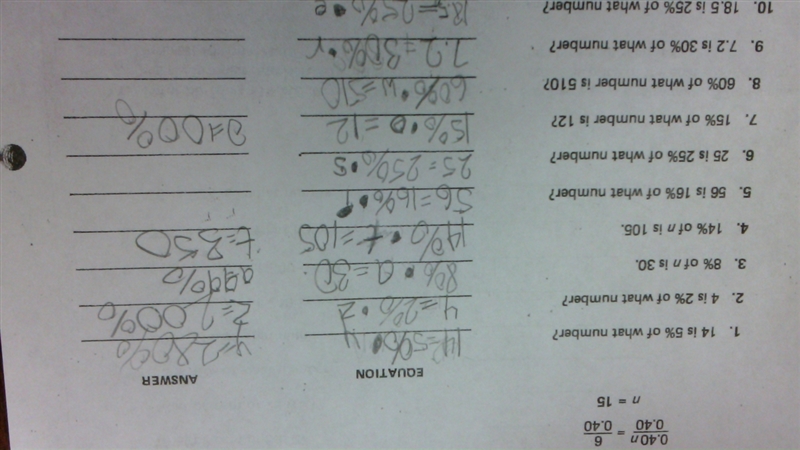 0.40n / 0.40 = 6 / 0.40
n = 15
EQUATION ANSWER
1. 14 is 5% of what number? 14=5%•y y=280%
2. 4 is 2% of what number? 4=2%•z z=200%
3. 8% of n is 30. 8%•a=30
4. 14% of n is 105. 14%•t=105 t=850
5. 56 is 16% of what number? 56=16%•
6. 25 is 25% of what number? 25=25%•s
7. 15% of what number is 12? 15%•o=12
8. 60% of what number is 510? 60%•w=510
9. 7.2 is 30% of what number? 7.2=30%•r
10. 18.5 is 25% of what number? 18.5=25%•e